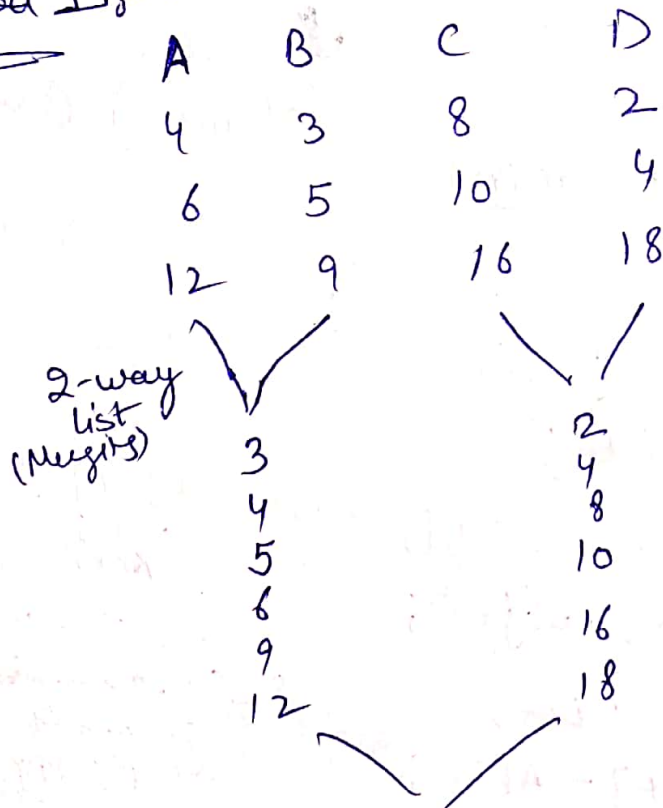 A B C D
4 3 8 2
6 5 10 4
12 9 16 18
2-way
list
(Merging)
3 2
4 4
5 8
6 10
9 16
12 18